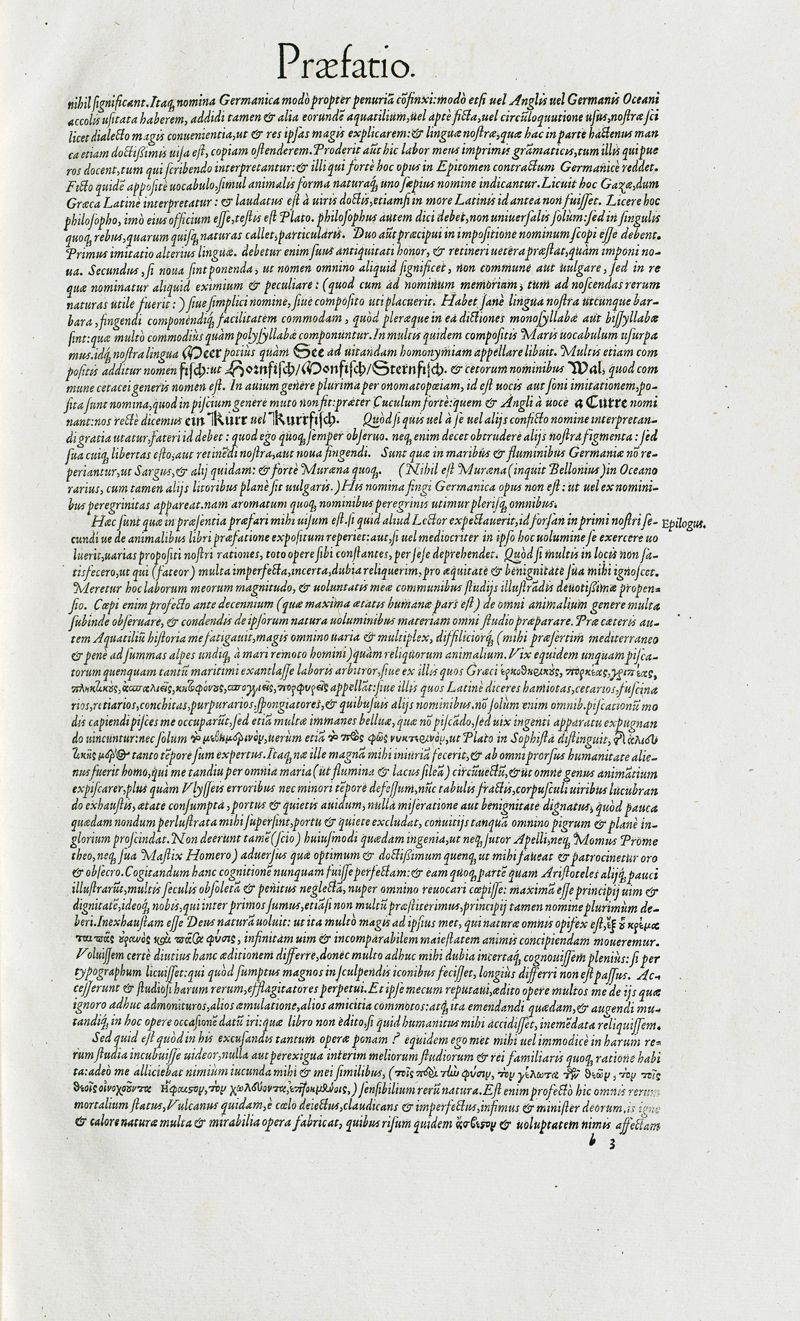 Præfatio.
nihil significant. Itaq; nomina Germanica modò propter penuriã cõfinxi: modò etsi uel Anglis uel Germanis Oceani
accolis usitata haberem, addidi tamen & alia eorundẽ aquatilium, uel aptè ficta, uel circũloquutione usus, nostræ sci
licet dialecto magis conuenientia, ut & res ipsas magis explicarem: & linguæ nostræ, quæ hac in parte hactenus man
ca etiam doctissimis uisa est, copiam ostenderem. Proderit aũt hic labor meus imprimis grãmaticis, tum illis qui pue
ros docent, tum qui scribendo interpretantur: & illi qui fortè hoc opus in Epitomen contractum Germanicè reddet.
Ficto quidẽ appositè uocabulo, simul animalis forma naturaq; uno sæpius nomine indicantur. Licuit hoc Gazæ, dum
Græca Latinè interpretatur: & laudatus est à uiris doctis, etiamsi in more Latinis id antea non fuisset. Licere hoc
philosopho, imò eius officium esse, testis est Plato. philosophus autem dici debet, non uniuersalis solùm: sed in singulis
quoq; rebus, quarum quisq; naturas callet, particularis. Duo aũt præcipui in impositione nominum scopi esse debent.
Primus imitatio alterius linguæ. debetur enim suus antiquitati honor, & retineri uetera præstat, quàm imponi no-
ua. Secundus, si noua sint ponenda, ut nomen omnino aliquid significet, non commune aut uulgare, sed in re
quæ nominatur aliquid eximium & peculiare: (quod cum ad nominum memoriam, tum ad noscendas rerum
naturas utile fuerit:) siue simplici nomine, siue composito uti placuerit. Habet sanè lingua nostra utcunque bar-
bara, fingendi componendiq; facilitatem commodam, quòd pleræque in ea dictiones monosyllabæ aut bissyllabæ
sint: quæ multò commodius quàm polysyllabæ componuntur. In multis quidem compositis Maris uocabulum usurpa
mus. idq; nostra lingua Meer potius quàm See ad uitandam homonymiam appellare libuit. Multis etiam com
positis additur nomen fisch: ut Hornfisch/Monfisch/Sternfisch. & cetorum nominibus Wal, quod com
mune cetacei generis nomen est. In auium genere plurima per onomatopœiam, id est uocis aut soni imitationem, po-
sita sunt nomina, quod in piscium genere muto non fit: præter Cuculum fortè: quem & Angli à uoce a Curre nomi
nant: nos rectè dicemus ein Kurr uel Kurrfisch. Quòd si quis uel à se uel alijs conficto nomine interpretan-
di gratia utatur, fateri id debet: quod ego quoq; semper obseruo. neq; enim decet obtrudere alijs nostra figmenta: sed
sua cuiq; libertas esto, aut retinẽdi nostra, aut noua fingendi. Sunt quæ in maribus & fluminibus Germaniæ nõ re-
periantur, ut Sargus, & alij quidam: & fortè Muræna quoq;. (Nihil est Muræna (inquit Bellonius) in Oceano
rarius, cum tamen alijs litoribus planè sit uulgaris.) His nomina fingi Germanica opus non est: ut uel ex nomini-
bus peregrinitas appareat. nam aromatum quoq; nominibus peregrinis utimur plerisq; omnibus.
Hæc sunt quæ in præsentia præfari mihi uisum est. si quid aliud Lector expectauerit, id forsan in primi nostri se-
Epilogus.
cundi ue de animalibus libri præfatione expositum reperiet: aut, si uel mediocriter in ipso hoc uolumine se exercere uo
luerit, uarias propositi nostri rationes, toto opere sibi constantes, per sese deprehendet. Quòd si multis in locis non sa-
tisfecero, ut qui (fateor) multa imperfecta, incerta, dubia reliquerim, pro æquitate & benignitate sua mihi ignoscet.
Meretur hoc laborum meorum magnitudo, & uoluntatis meæ communibus studijs illustrãdis deuotissimæ propen-
sio. Cœpi enim profecto ante decennium (quæ maxima ætatis humanæ pars est) de omni animalium genere multa
subinde obseruare, & condendis de ipsorum natura uoluminibus materiam omni studio præparare. Præ cæteris au-
tem Aquatiliũ historia me fatigauit, magis omnino uaria & multiplex, difficiliorq; (mihi præsertim mediterraneo
& penè ad summas alpes undiq; à mari remoto homini) quàm reliquorum animalium. Vix equidem unquam pisca-
torum quenquam tantũ maritimi exantlasse laboris arbitror, siue ex illis quos Græci
appellãt: siue illis quos Latinè diceres hamiotas, cetarios, fuscina
rios, retiarios, conchitas, purpurarios, spongiatores, & quibusuis alijs nominibus. nõ solùm enim omnib. piscationũ mo
dis capiendi pisces me occuparũt, sed etiã multæ immanes belluæ, quæ nõ piscãdo, sed uix ingenti apparatu expugnan
do uincuntur: nec solùm τὸ μεθημερινὸν, uerùm etiã τὸ πρὸς φῶς νυκτερινὸν, ut Plato in Sophista distinguit, ἁλιευ
τικῆς μέρος tanto tẽpore sum expertus. Itaq; næ ille magnã mihi iniuriã fecerit, & ab omni prorsus humanitate alie-
nus fuerit homo, qui me tandiu per omnia maria (ut flumina & lacus sileã) circũuectũ, & ut omne genus animãtium
expiscarer, plus quàm Vlysseis erroribus nec minori tẽpore defessum, nũc tabulis fractis, corpusculi uiribus lucubran
do exhaustis, ætate consumpta, portus & quietis auidum, nulla miseratione aut benignitate dignatus, quòd pauca
quædam nondum perlustrata mihi supersint, portu & quiete excludat, conuitijs tanquã omnino pigrum & planè in-
glorium proscindat. Non deerunt tamẽ (scio) huiusmodi quædam ingenia, ut neq; sutor Apelli, neq; Momus Prome
theo, neq; sua Mastix Homero) aduersus quæ optimum & doctissimum quenq; ut mihi faueat & patrocinetur oro
& obsecro. Cogitandum hanc cognitionẽ nunquam fuisse perfectam: & eam quoq; partẽ quam Aristoteles alijq; pauci
illustrarũt, multis seculis obsoletã & penitus neglectã, nuper omnino reuocari cœpisse: maximã esse principij uim &
dignitatẽ, ideoq; nobis, qui inter primos sumus, etiãsi non multũ præstiterimus, principij tamen nomine plurimùm de-
beri. Inexhaustam esse Deus naturã uoluit: ut ita multò magis ad ipsius met, qui naturæ omnis opifex est, ἐξ οὗ κρέμα
ται πᾶς οὐρανὸς καὶ πᾶσα φύσις, infinitam uim & incomparabilem maiestatem animis concipiendam moueremur.
Voluissem certè diutius hanc æditionem differre, donec multo adhuc mihi dubia incertaq; cognouissem plenius: si per
typographum licuisset: qui quòd sumptus magnos in sculpendis iconibus fecisset, longiùs differri non est passus. Ac-
cesserunt & studiosi harum rerum, efflagitatores perpetui. Et ipse mecum reputaui, ædito opere multos me de ijs quæ
ignoro adhuc admonituros, alios æmulatione, alios amicitia commotos: atq; ita emendandi quædam, & augendi mu-
tandiq; in hoc opere occasionẽ datũ iri: quæ libro non ædito, si quid humanitus mihi accidisset, inemẽdata reliquissem.
Sed quid est quòd in his excusandis tantum operæ ponam? equidem ego met mihi uel immodicè in harum re-
rum studia incubuisse uideor, nulla aut perexigua interim meliorum studiorum & rei familiaris quoq; ratione habi
ta: adeò me alliciebat nimiùm iucunda mihi & mei similibus, (τοῖς περὶ τὴν φύσιν, τὸν γέλωτα τῶν θεῶν, τὸν τοῖς
θεοῖς οἰνοχοοῦντα Ἥφαιστον, τὸν χωλεύοντα,) sensibilium rerũ natura. Est enim profectò hic omnis rerum
mortalium status, Vulcanus quidam, è cœlo deiectus, claudicans & imperfectus, infimus & minister deorum, is igne
& calore naturæ multa & mirabilia opera fabricat, quibus risum quidem ἄσβεστον & uoluptatem nimis affectam
b 3